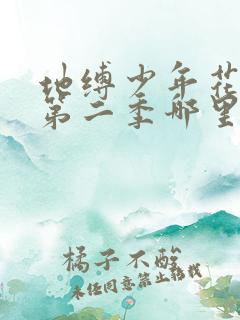 地缚少年花
第二季哪里
橘子不酸
未经同意禁止转载